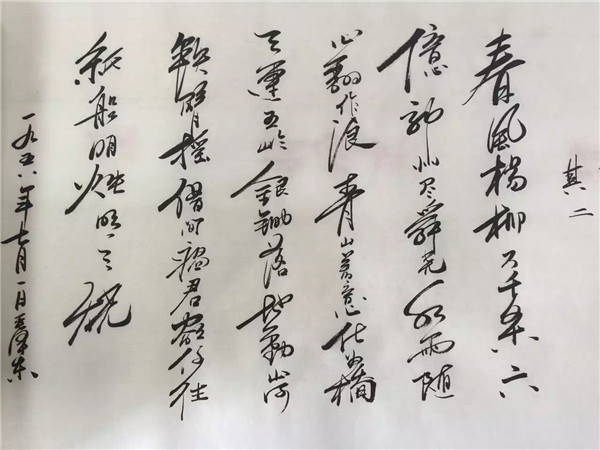 其二
春風楊柳万千条六
億神州尽舜尧红雨随
心翻作浪青山着意化为橋
天連五岭銀锄落地動山河
鉄臂摇借问瘟君欲何往
纸船明烛照天烧
一九五八年七月一日毛泽东